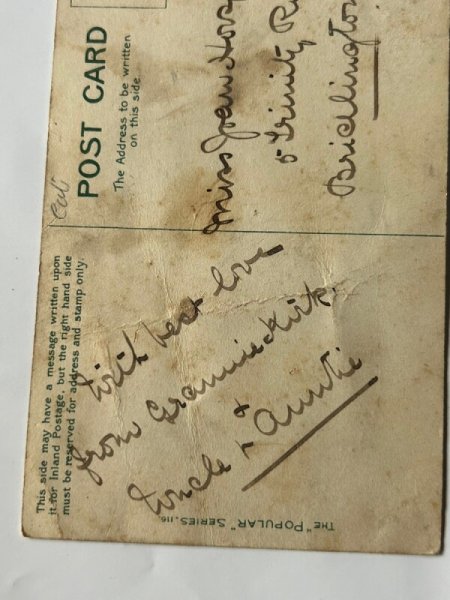 This side may have a message written upon
it for Inland Postage, but the right hand side
must be reserved for address and stamp only.
With best love
from Grannie Kirk.
Uncle & Auntie
THE "POPULAR" SERIES. 116
POST CARD
The Address to be written
on this side.
Miss Joan
5 Trinity
Bridlington